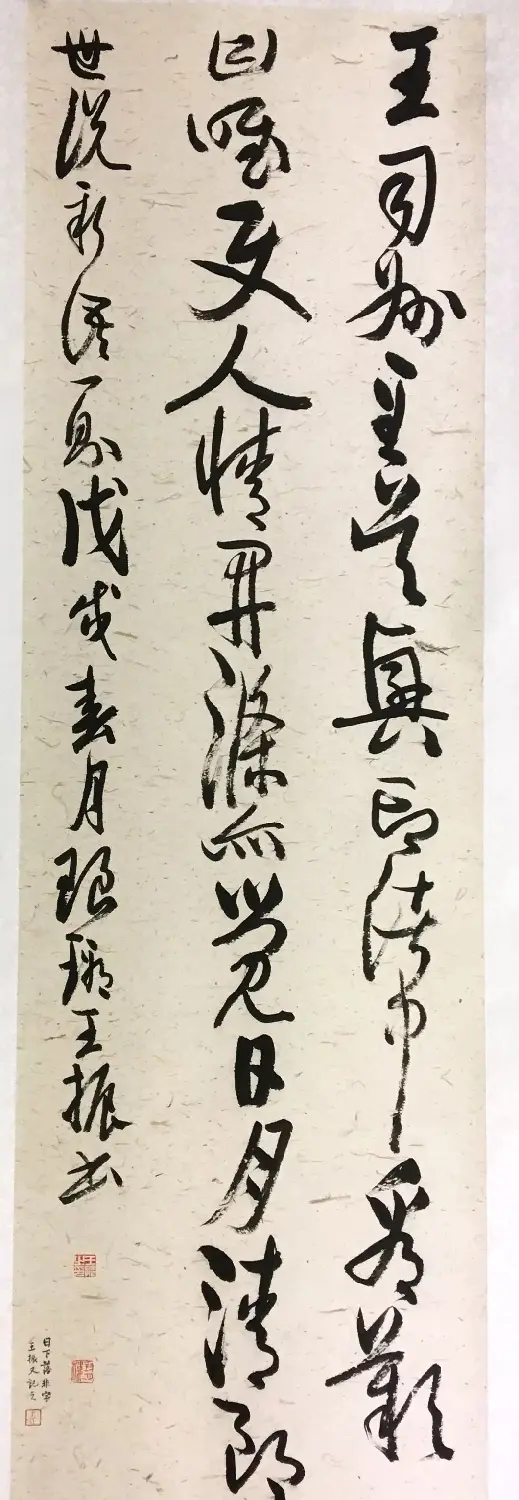 王司州至吳興印渚中看歎
曰唯使人情開滌亦覺日月清朗
世説新語一則戊戌春月琅琊王振書
曰下落非字
王振又記之